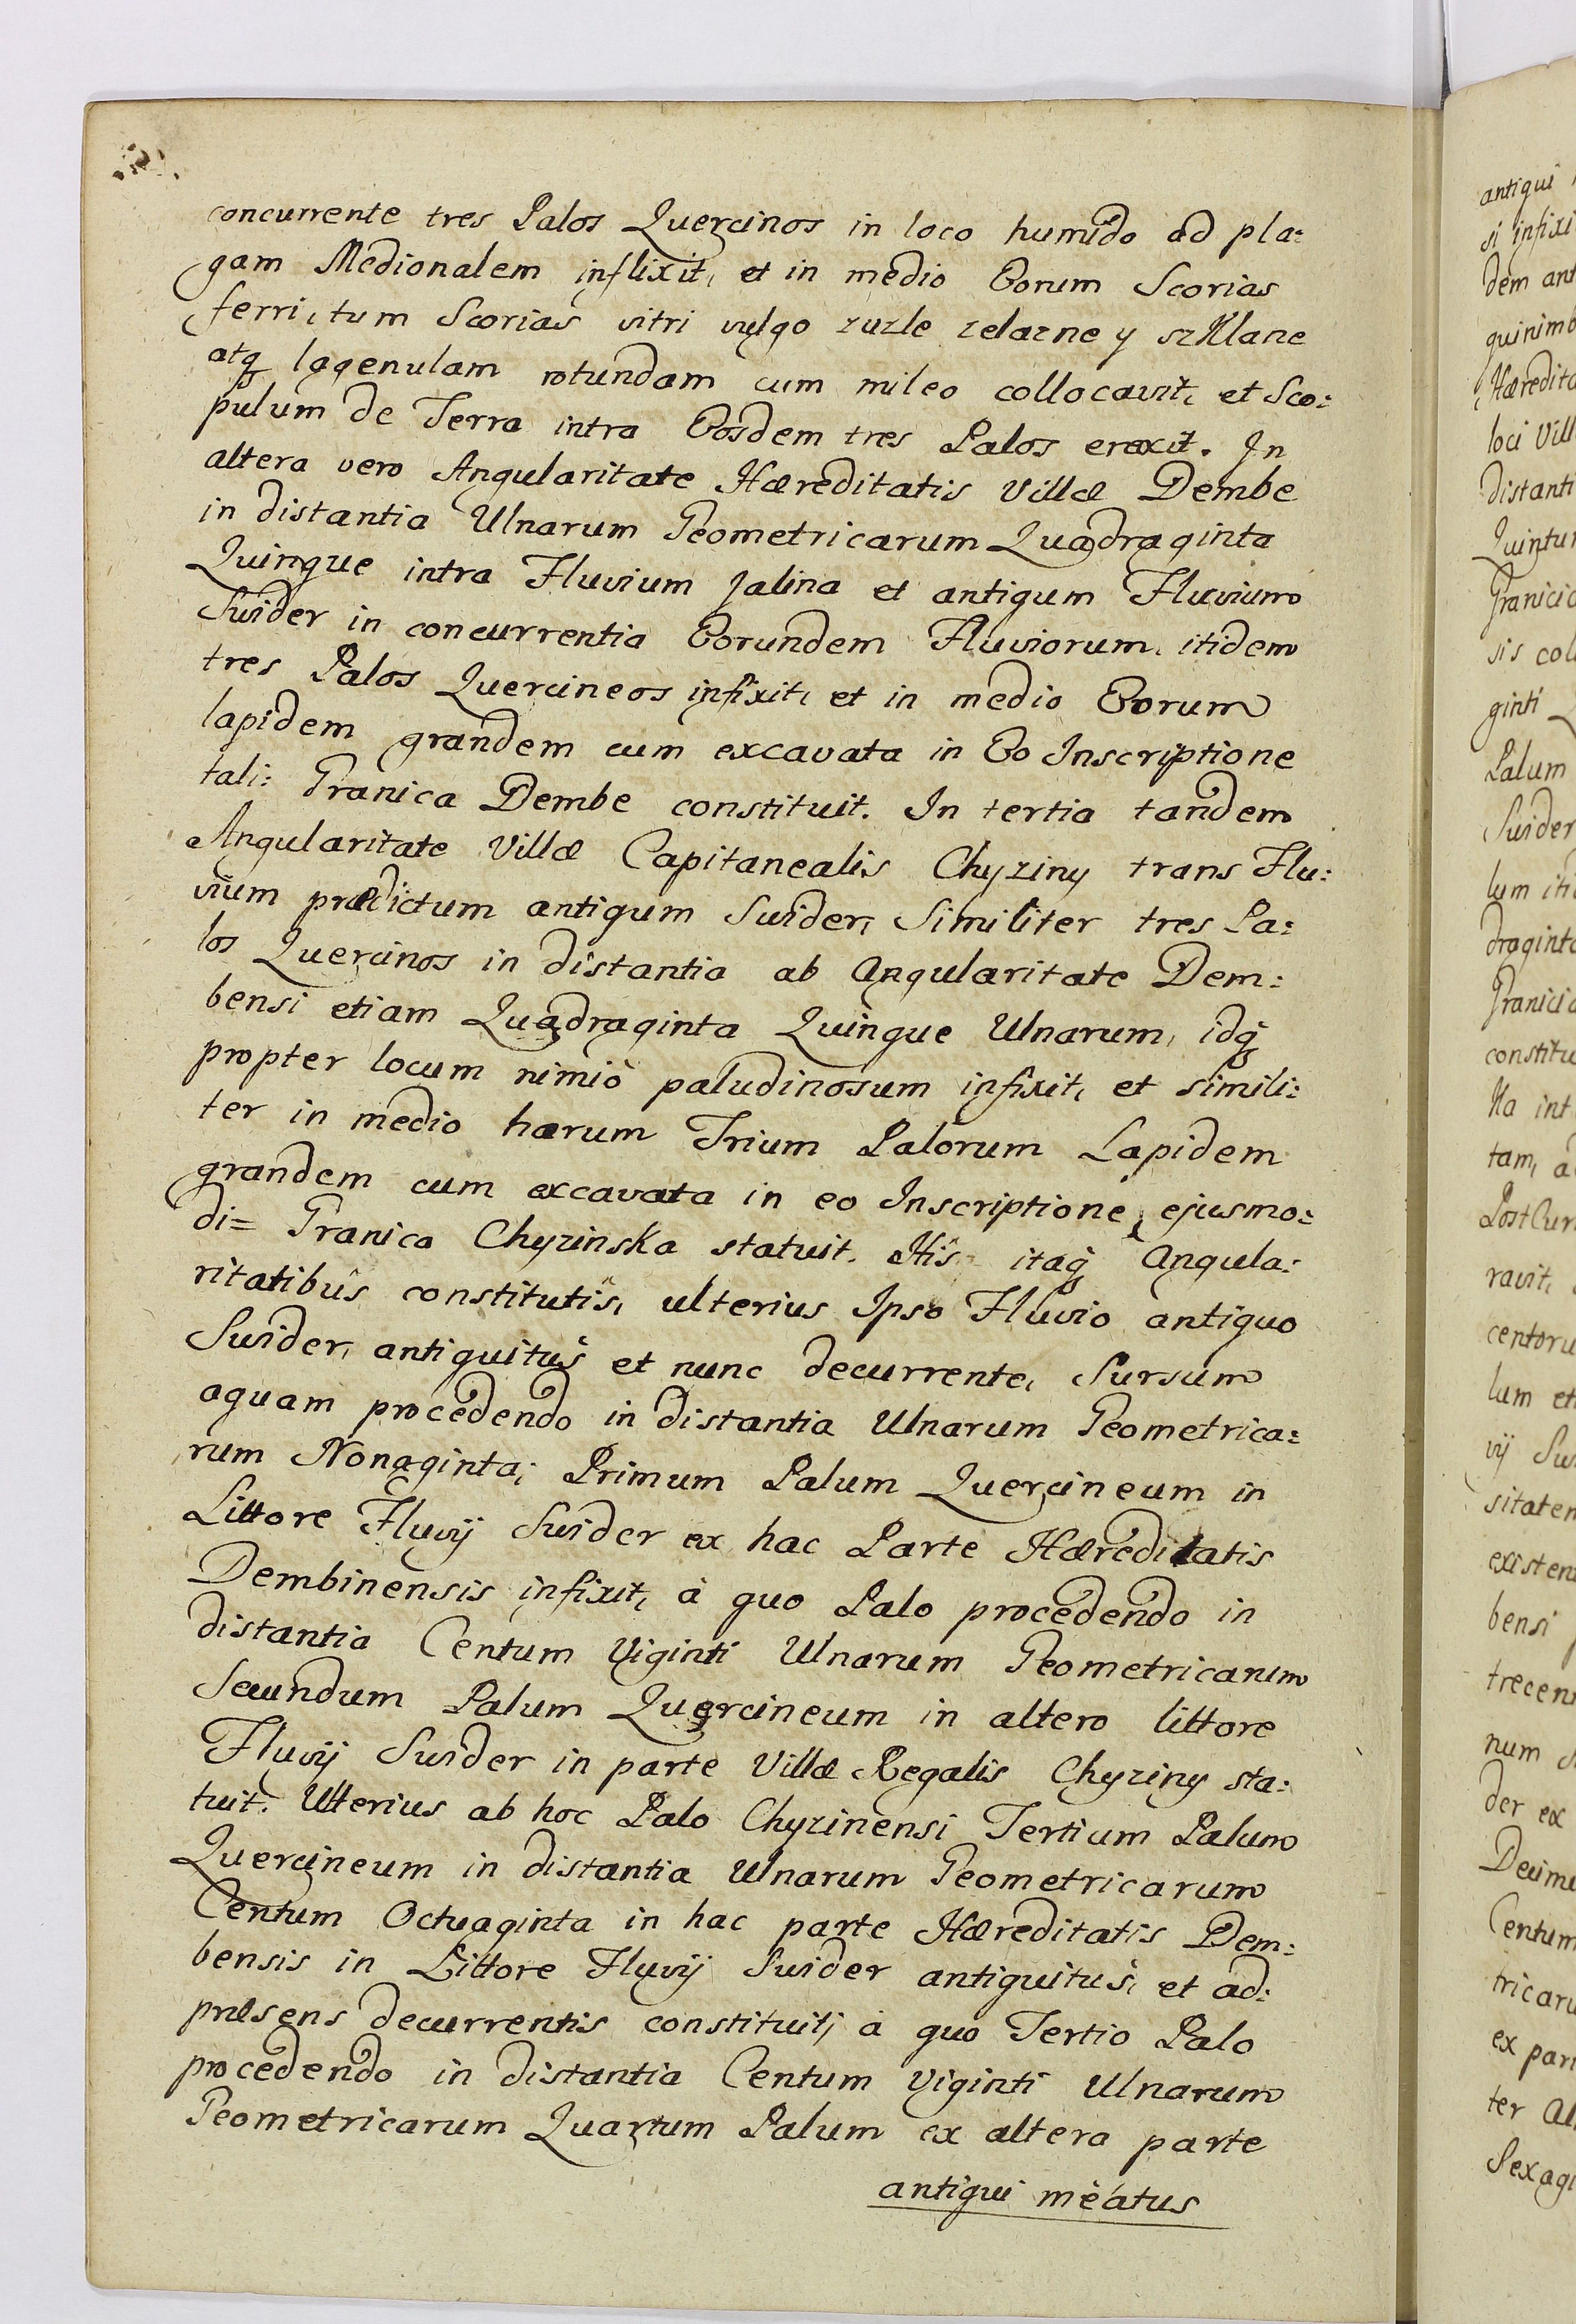 concurrente tres Palos Quercinos in loco humido ad pla:
gam Medionalem inflixit, et in medio Eorum Scorias
ferri, tum Scorias vitri vulgo zuzle zelazne y szklane
atq lagenulam rotundam cum mileo collocavit, et Sco:
pulum de Terra intra Eosdem tres Palos erexit. In
altera vero Angularitate Hæreditatis Villæ Dembe
in distantia Ulnarum Geometricarum Quadraginta
Quinque intra Fluvium Jalina et antiqum Fluvium
Swider in concurrentia Eorundem Fluviorum, itidem
tres Palos Quercineos infixit, et in medio Eorum
lapidem grandem cum excavata in Eo Inscriptione
tali: Granica Dembe constituit. In tertia tandem
Angularitate Villæ Capitanealis Chyziny trans Flu:
vium prædictum antiqum Swider, Similiter tres Pa:
los Quercinos in distantia ab Angularitate Dem:
bensi etiam Quadraginta Quinque Ulnarum, idq
propter locum nimiò paludinosum infixit, et simili:
ter in medio harum Trium Palorum Lapidem
grandem cum excavata in eo Inscriptione, ejusmo:
di= Granica Chyzinska statuit. Hîs itaq Angula:
ritatibûs constitutîs, ulterius Ipso Fluvio antiquo
Swider, antiquitùs et nunc decurrente, Sursum
aquam procedendo in distantia Ulnarum Geometrica:
rum Nonaginta; Primum Palum Quercineum in
Littore Fluvij Swider ex hac Parte Hæreditatis
Dembinensis infixit, à quo Palo procedendo in
distantia Centum Viginti Ulnarum Geometricarum
Secundum Palum Quercineum in altero littore
Fluvij Swider in parte Villæ Regalis Chyziny sta:
tuit. Ulterius ab hoc Palo Chyzinensi Tertium Palum
Quercineum in distantia Ulnarum Geometricarum
Centum Octuaginta in hac parte Hæreditatis Dem:
bensis in Littore Fluvij Swider antiquitùs, et ad:
præsens decurrentis constituit, à quo Tertio Palo
procedendo in distantia Centum Viginti Ulnarum
Geometricarum Quartum Palum ex altera parte
antiqui meatus
antiqui
si infixi
dem ant
quinimo
Hæredita
loci Vill
distanti
Quintu
Granicia
sis col
ginti
Palum
Swider
lum iti
draginta
Granicia
constitu
Ka int
tam, a
Post Cur
ravit,
centoru
lum et
vij Sw
sitatem
existen
bensi
trecen
num
der ex
Decimu
Centum
tricaru
ex par
ter Al
Sexagi